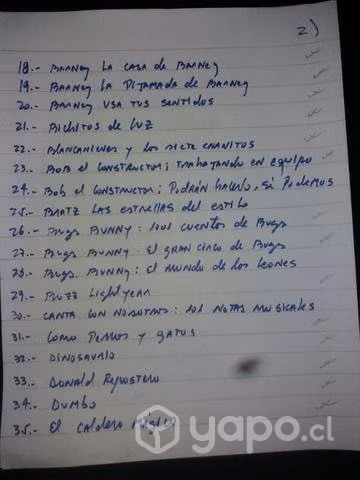 2)
18.- BARNEY LA CASA de BARNEY
19.- BARNEY LA PIJAMADA de BARNEY
20.- BARNEY USA TUS SENTIDOS
21.- BICHITOS de LUZ
22.- BLANCANIEVES y los SIETE ENANITOS
23.- BOB el CONSTRUCTOR; TRABAJANDO EN EQUIPO
24.- Bob el CONSTRUCTOR; PODRÁN HACERLO, SI PODEMOS
25.- BRATZ LAS ESTRELLAS del ESTILO
26.- BUGS BUNNY: 1001 CUENTOS de BUGS
27.- BUGS BUNNY: El GRAN CIRCO de BUGS
28.- BUGS BUNNY: El MUNDO de los LEONES
29.- BUZZ LIGHTYEAR
30.- CANTA CON NOSOTROS: 101 NOTAS MUSICALES
31.- COMO PERROS y GATOS
32.- DINOSAURIO
33.- DONALD REPOSTERO
34.- DUMBO
35.- El CALDERO MÁGICO
yapo.cl